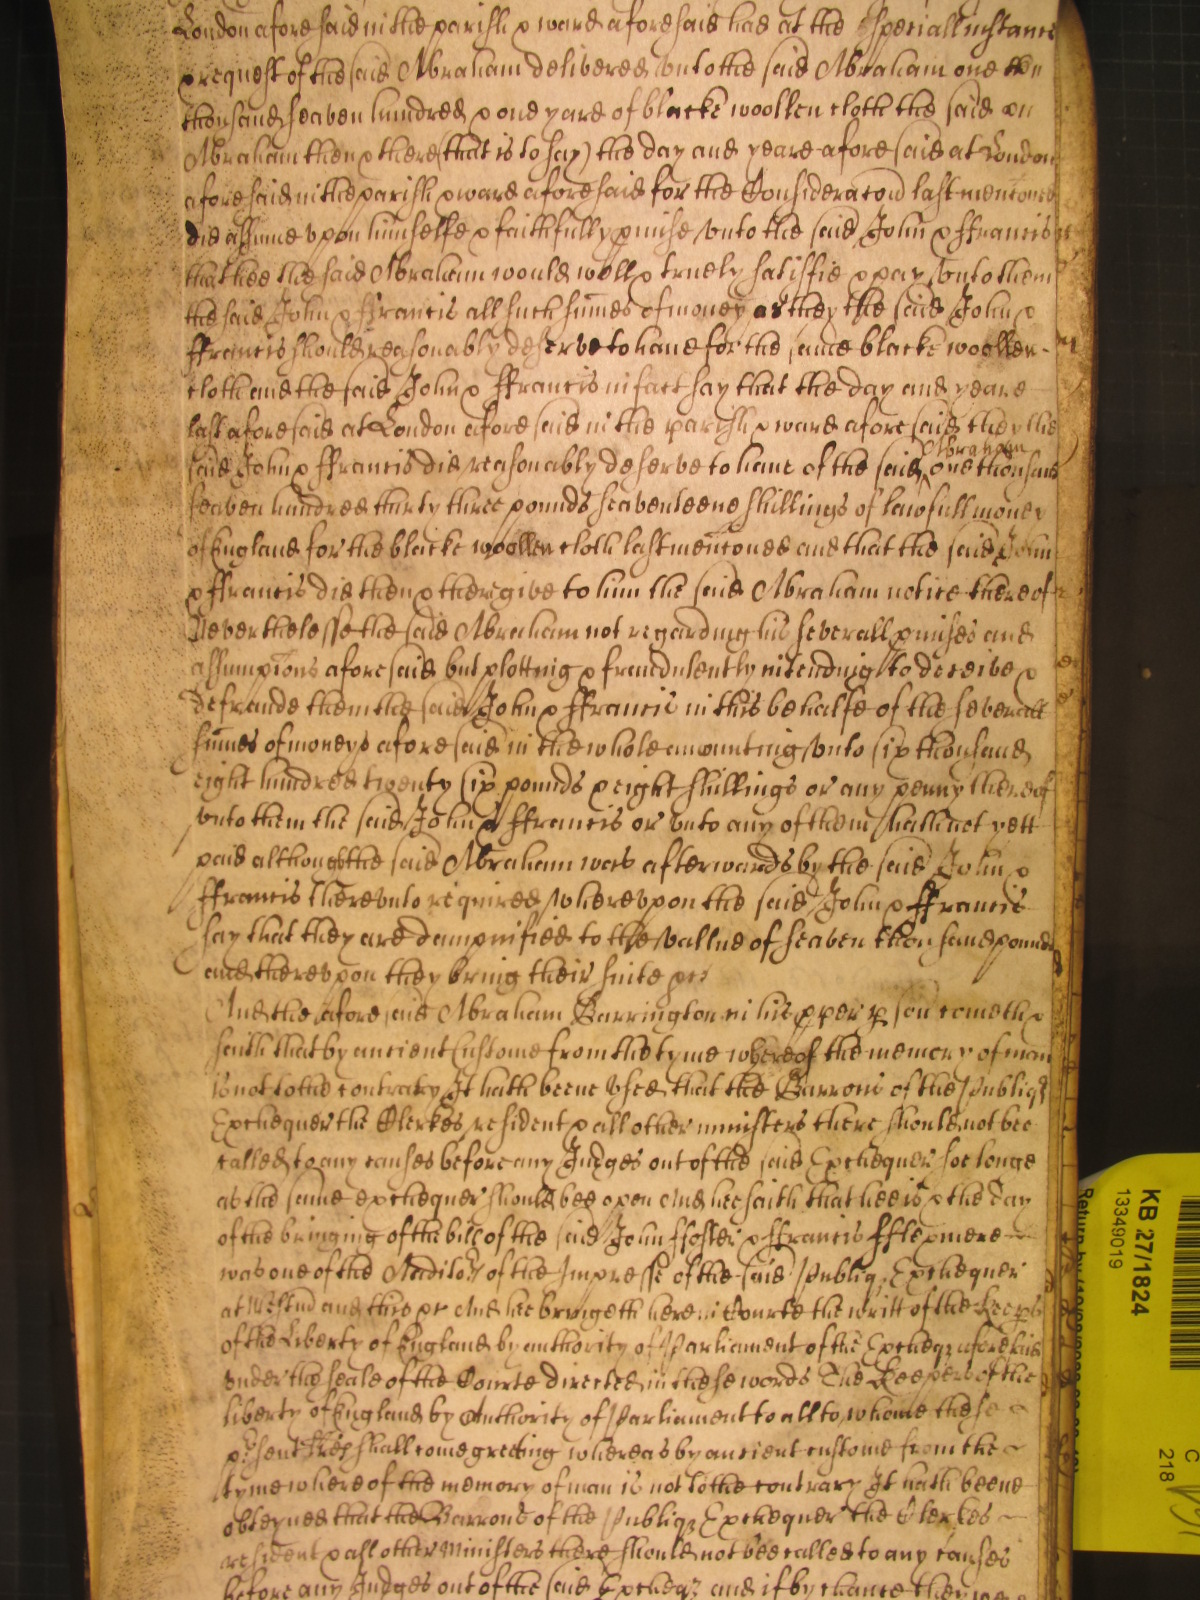 London aforesaid in the parish & ward aforesaid had at the speciall instance
& request of the said Abraham delivered unto the said Abraham one
thousand seaven hundred & one yard of blacke woollen cloth the said
Abraham then & there (that is to say) the day and yeare aforesaid at London
aforesaid in the parish & ward aforesaid for the Consideracon last mentoned
did assume upon himselfe & faithfully pmise unto the said John & ffrancis
that hee the said Abraham would well & truely satisfie & pay unto them
the said John & ffrancis all such sumes of money as they the said John &
ffrancis should reasonably deserve to have for the same blacke woollen
cloth and the said John & ffrancis in fact say that the day and yeare
last aforesaid at London aforesaid in the parish & ward aforesaid they the
said John & ffrancis did reasonably deserve to have of the said Abraham one thousand
seaven hundred thirty three pounds seaventeene shillings of lawfull money
of England for the blacke woollen cloth last mentoned and that the said John
& ffrancis did then & there give to him the said Abraham notice thereof
Neverthelesse the said Abraham not regarding his severall pmises and
assumptions aforesaid but plotting & fraudulently intending to deceive &
defraude them the said John & ffrancis in this behalfe of the severall
sumes of moneys aforesaid in the whole amounting unto six thousand
eight hundred twenty six pounds & eight shillings or any penny thereof
unto them the said John & ffrancis or unto any of them hath not yett
paid although the said Abraham was afterwards by the said John &
ffrancis thereunto required whereupon the said John & ffrancis
say that they are dampnified to the vallue of seaven thousand pounds
and thereupon they bring their suite &c
And the aforesaid Abraham Barrington in his pper pson cometh &
saith that by ancient Custome from the tyme whereof the memory of man
is not to the contrary It hath beene used that the Barrons of the Publiq
Exchequer the Clerkes resident & all other ministers there should not bee
called to any causes before any Judges out of the said Exchequer soe longe
as the same exchequer should bee open And hee saith that hee is & the day
of the bringing of the bill of the said John ffoster & ffrancis
was one of the Auditors of the Impresse of the said Publiq Exchequer
at Westm and this &c And hee bringeth here in Courte the writt of the Keeps
of the Liberty of England by authority of Parliament of the Excheqr aforesaid
under the seale of the Courte directed in these words The Keepers of the
liberty of England by Authority of Parliament to all to whome these
psent shall come greeting whereas by ancient custome from the
tyme whereof the memory of man is not to the contrary It hath beene
obteyned that the Barrons of the Publiq Exchequer the Clerkes
resident & all other Ministers there should not bee called to any causes
before any Judges out of the said Excheqr and if by chance they were
KB 27/1824
13349019
218